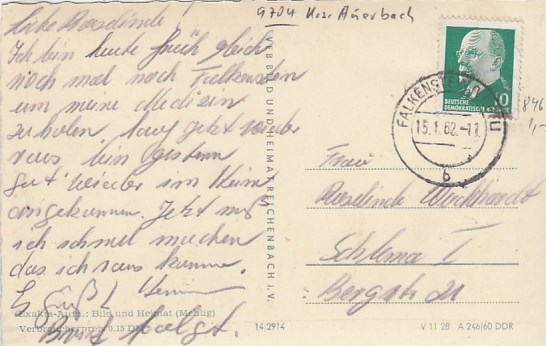 9704 Krs. Auerbach
Liebe Roselinde!
Ich bin heute früh gleich
noch mal nach Falkenstein
um meine Medizin
zu holen, jetzt wieder
raus bin gestern
gut wieder im Heim
angekommen. Jetzt muß
ich schnell machen
das ich raus komme.
Es grüßt
Brief folgt.
Exakta-Aufn.: Bild und Heimat (Mehlig)
Verbraucherpreis 0,15 DM
14/2914
VEB BILD UND HEIMAT REICHENBACH I. V.
DEUTSCHE
DEMOKRATISCHE
10
FALKENSTEIN
15.1.62.-11
b
846
1,-
Frau
Roselinde
Schlema I
Bergstr. 21
V 11 28 A 246/60 DDR